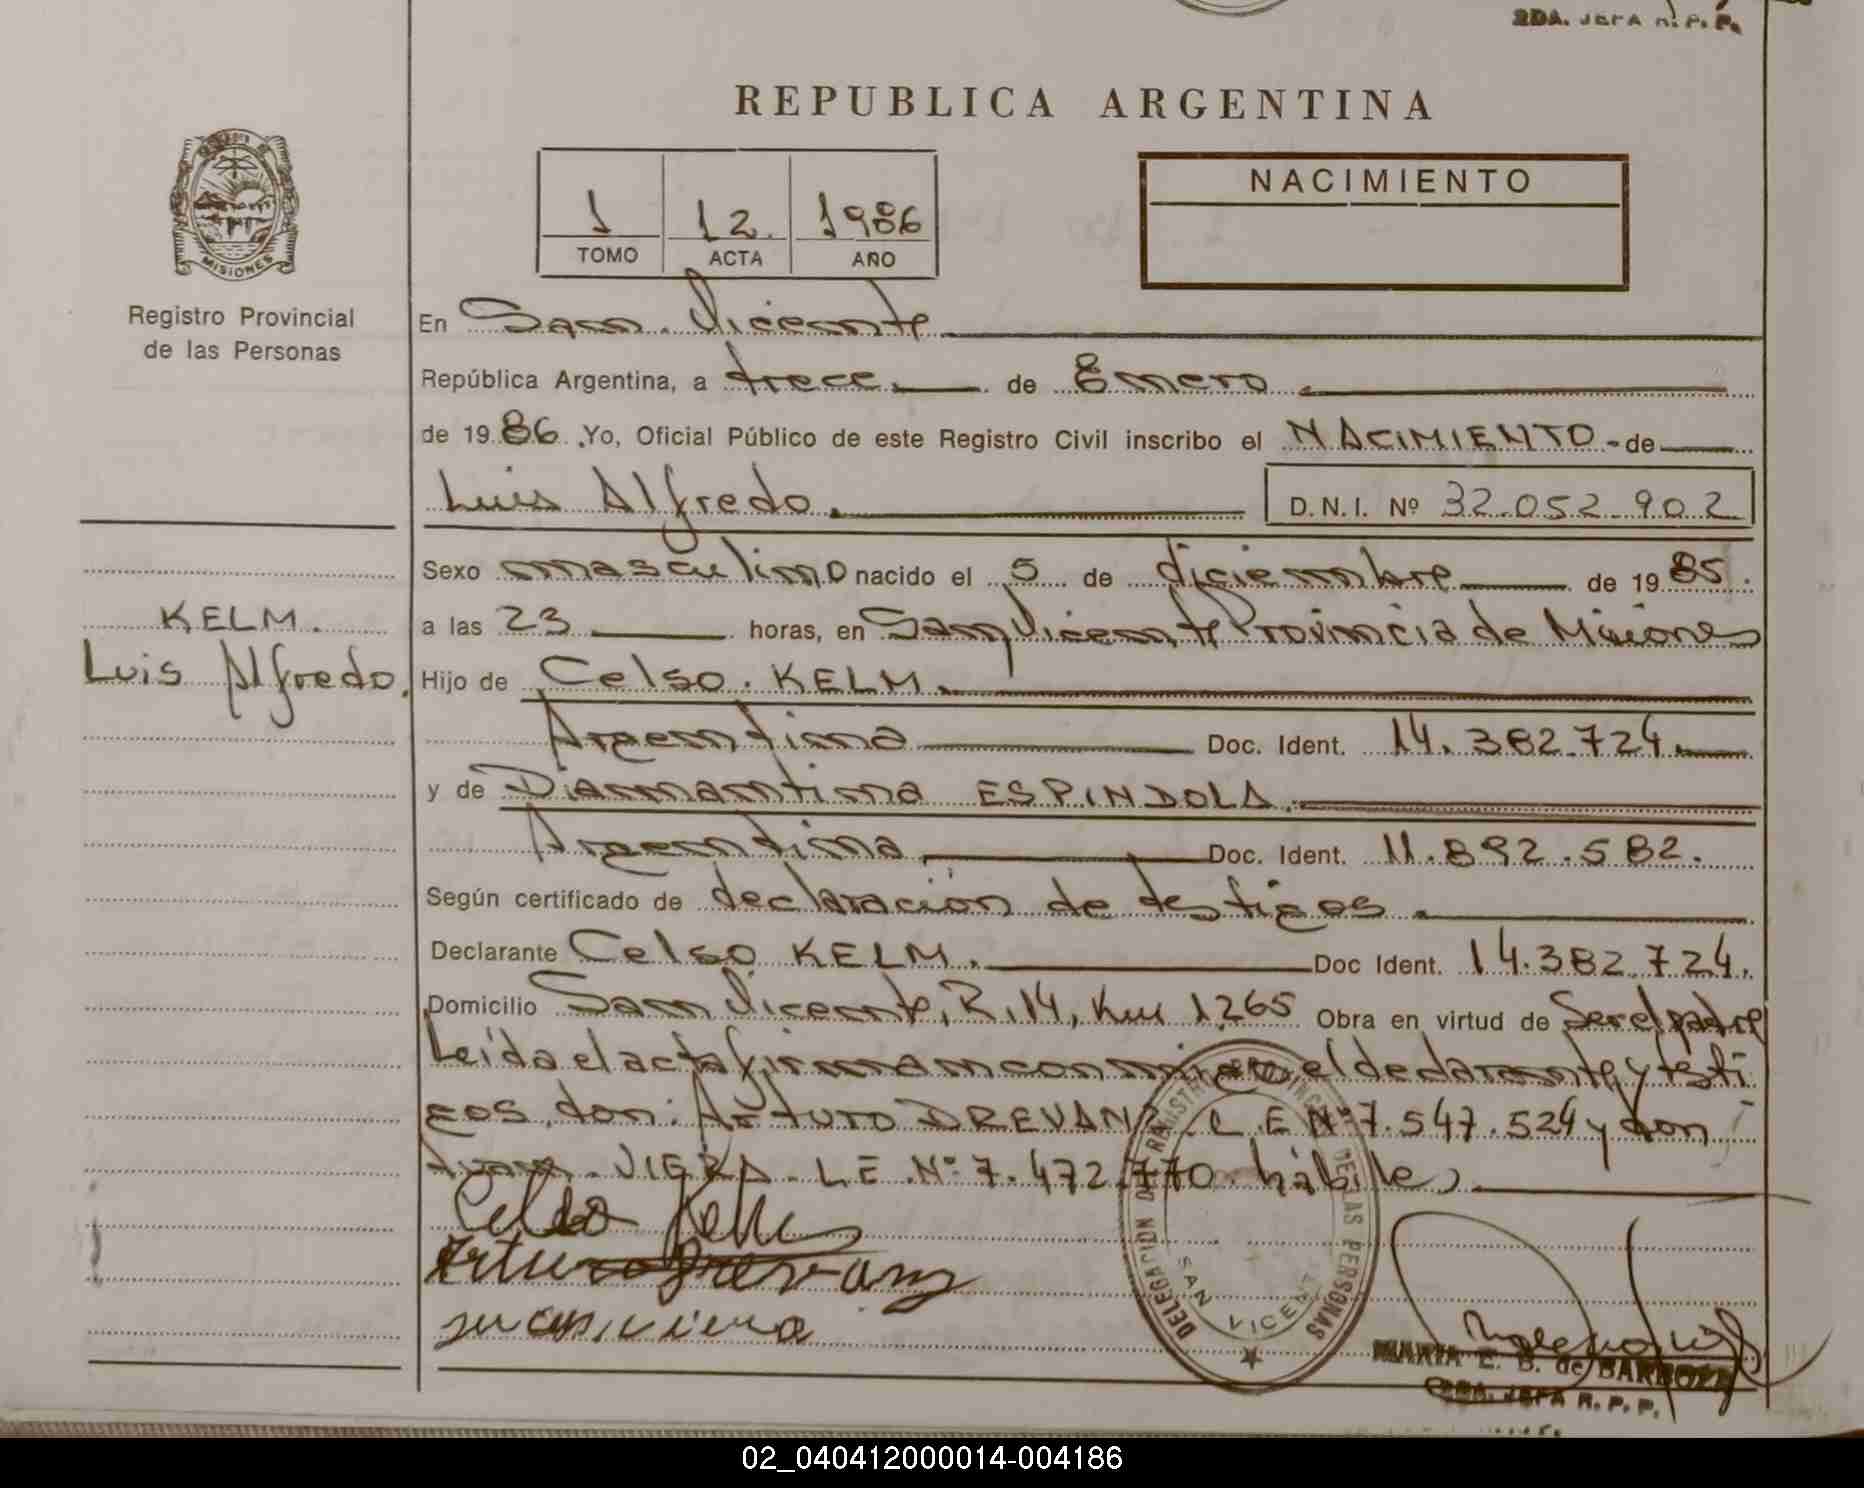 2DA. JEFA R. P. P.
REPUBLICA ARGENTINA
NACIMIENTO
1 12. 1986
TOMO ACTA AÑO
MISIONES
Registro Provincial
de las Personas
En San Vicente
República Argentina, a trece de Enero
de 19 86 .Yo, Oficial Público de este Registro Civil inscribo el NACIMIENTO - de
Luis Alfredo. D.N.I. Nº 32.052.902
Sexo masculino nacido el 5 de diciembre de 19 85.
KELM.
a las 23 horas, en San Vicente Provincia de Misiones
Luis Alfredo.
Hijo de Celso. KELM.
Argentina Doc. Ident. 14.382.724.
y de Diamantina ESPINDOLA.
Argentina Doc. Ident. 11.892.582.
Según certificado de declaración de testigos.
Declarante Celso KELM. Doc Ident. 14.382.724.
Domicilio San Vicente, R.14, Km 1.265 Obra en virtud de Ser el padre
Leída el acta firman conmigo el declarante y testi
gos, don: Arturo DREVANZ. L.E Nº 7.547.524 y don
Juan. VIERA. L.E. Nº 7.472.770 hábiles
Celso Kelm
Arturo Drevanz
juan, viera
DELEGACION REGISTRO PROVINCIAL DE LAS PERSONAS
SAN VICENTE
MARIA E. B. de BARBOZA
2DA. JEFA R. P. P.
02_040412000014-004186